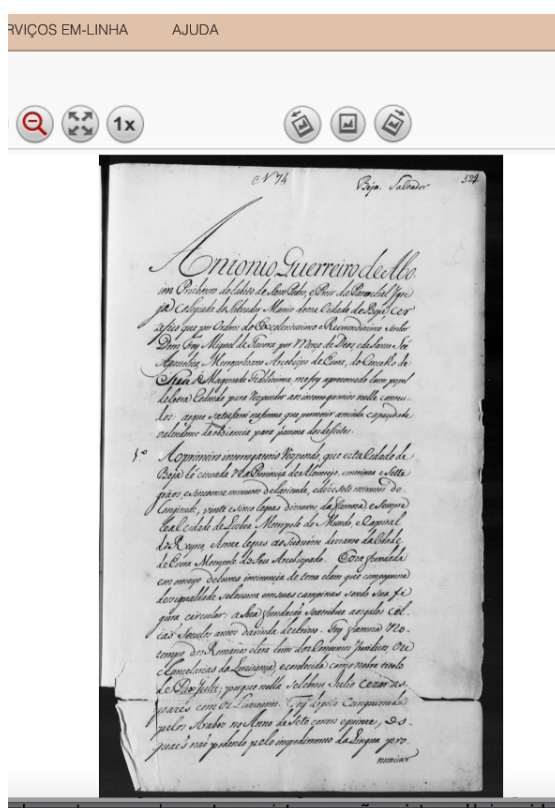 RVIÇOS EM-LINHA AJUDA
1x
Nº 74 Beja. Salvador 524
Antonio Guerreiro de Abo
im do habito de São Pedro, e Prior da Parrochial Igre
ja Colegiada do Salvador Mauris desta Cidade de Beja, Cer
tefico que por Ordem do Excelentissimo e Reverendissimo Senhor
Dom Frey Miguel de Tavora por Merce de Deos e da Santa See
Apostolica, Metropolitano Arcebispo de Evora, do Concelho de
Sua Magestade Fidelissima, me foy aprezentado hum papel
de letra para responder aos interrogatorios nelle conteu
dos: aque satisfasi na forma que permitir aminha capacidade
valendome da obediencia para os defeitos.
1º Ao primeiro interrogatorio Respondo, que esta Cidade de
Beja he cituada na Provincia do Alentejo, em trinta e sette
graos, e sincoenta minutos de latitude, e dezesete minutos de
Longitude, vinte e sinco legoas distante da famoza e sempre
Leal cidade de Lisboa Metropole do Mundo, e Capital
do Reyno, e onze legoas ao distante da Cidade
de Evora Metropole do seu Arcebispado. Esta fundada
em de huma iminencia de terra
desigualdade em suas campinas sendo sua fi
gura circular: a sua fundação
seculos antes da vinda de Christo. Foy famoza no
tempo dos Romanos e era hum dos Conventos Juridicos, ou
Chancelarias da Luzitania, e conhecida com o nobre titulo
de Pax Julia; porque nella celebrou Julio Cezar as
pazes com os Lusitanos. Foy depois Conquistada
pelos Arabes no Anno de sete centos e quinze, os
quaes não podendo pelo impedimento da Lingua pro
nunciar